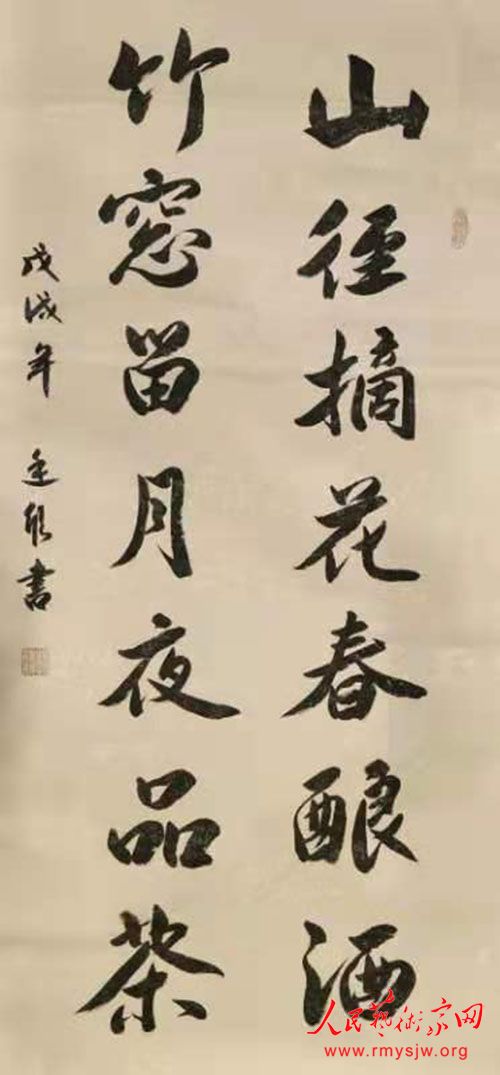 山径摘花春酿酒
竹窓留月夜品茶
戊戌年
书
人民艺术家网
www.rmysjw.org